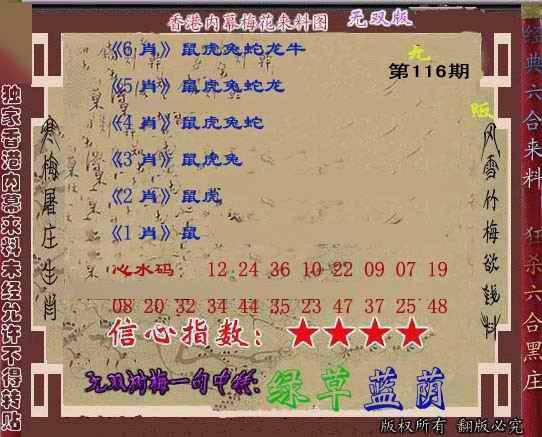 香港内幕梅花来料图 无双版
《6 肖》鼠虎兔蛇龙牛
无
第116期
《5 肖》鼠虎兔蛇龙
版
《4 肖》鼠虎兔蛇
《3 肖》鼠虎兔
《2 肖》鼠虎
《1 肖》鼠
心水码： 12 24 36 10 22 09 07 19
08 20 32 34 44 35 23 47 37 25 48
信心指数：★★★★
绿草蓝荫
版权所有 翻版必究
独家香港内幕来料未经允许不得转贴
寒梅屠庄生肖
风雪竹梅欲钱料
经典六合来料 狂杀六合黑庄